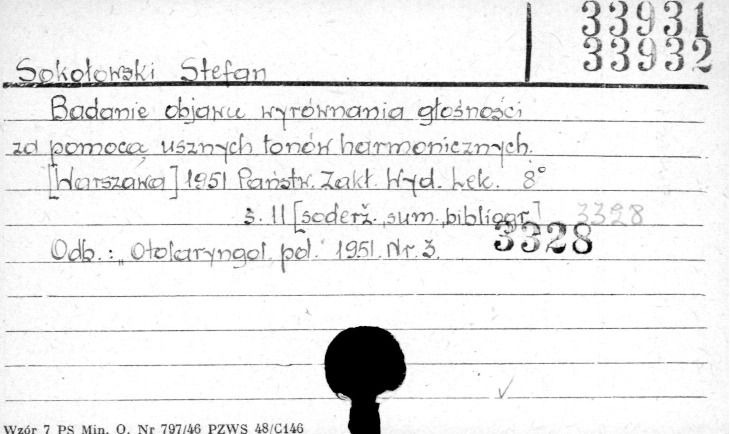 33931
33932
Sokołowski Stefan
Badanie objawu wyrównania głośności
za pomocą usznych tonów harmonicznych.
[Warszawa] 1951 Państw. Zakł. Wyd. Lek. 8°
s. 11 [soderž., sum., bibliogr.] 3328
Odb.: "Otolaryngol. pol." 1951. Nr. 3. 3328
Wzór 7 PS Min. O. Nr 797/46 PZWS 48/C146